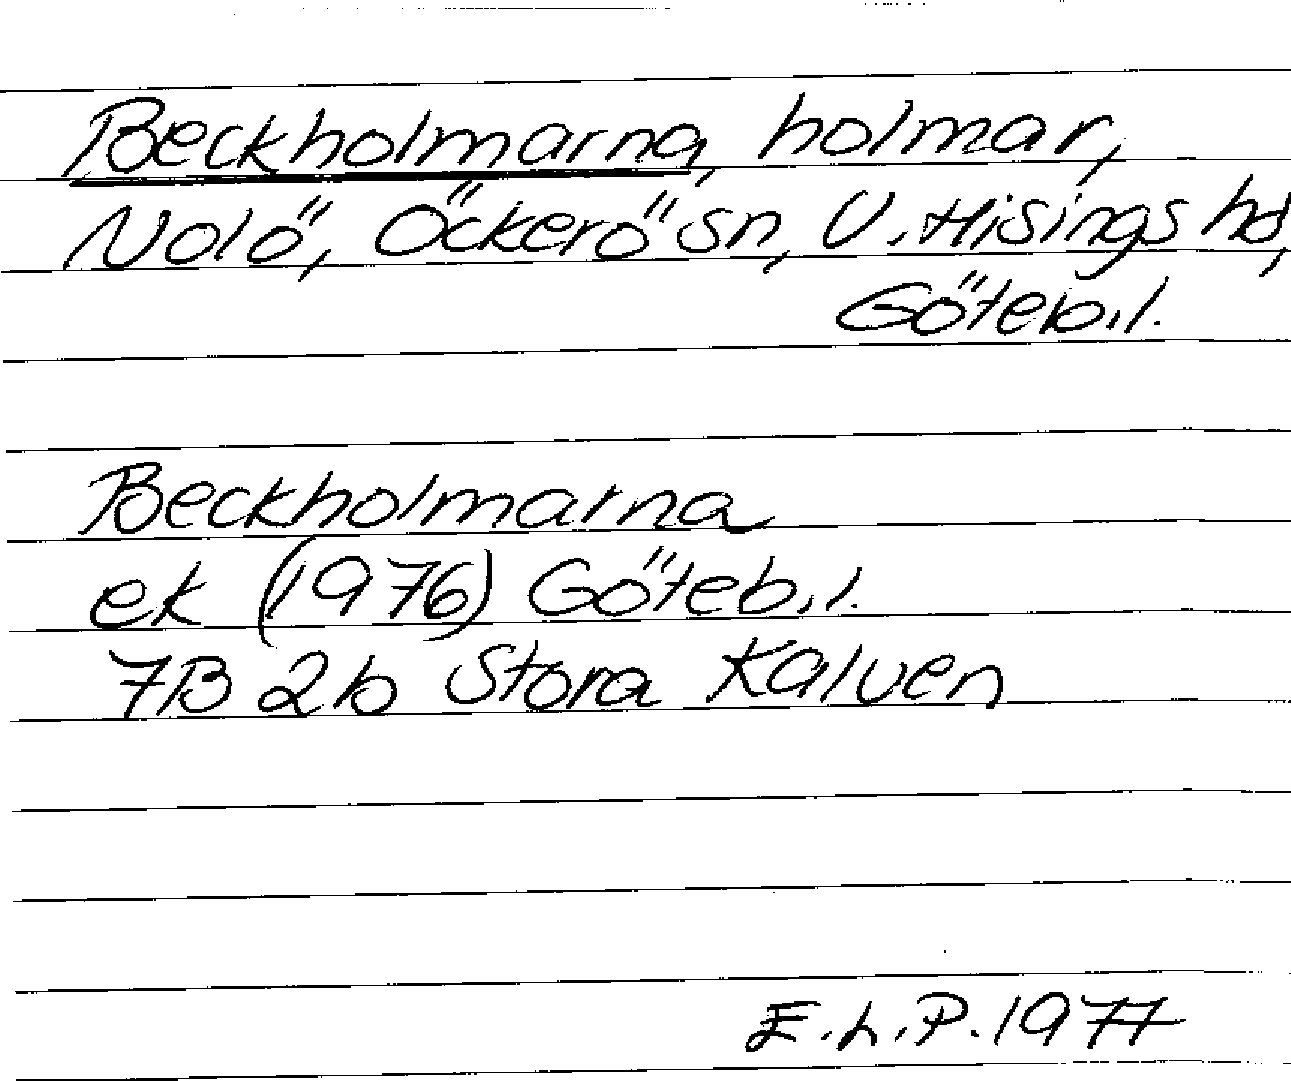 Beckholmarna, holmar,
Nolö, Öckerö sn, V. Hisings hd,
Göteb.l.
Beckholmarna
ek (1976) Göteb.l.
7B 2b Stora Kalven
E.L.P. 1977